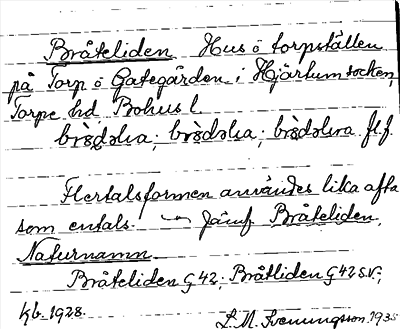 Bråteliden. Hus o torpställen
på Torp o Gategården i Hjärtum socken,
Torpe hd. Bohus l.
Flertalsformen användes lika ofta
som entals. Jämf. Bråteliden,
Naturnamn.
Bråteliden G 42; Bråtliden G 42 s.v.;
kb. 1928.
L. M. Svenungsson 1935